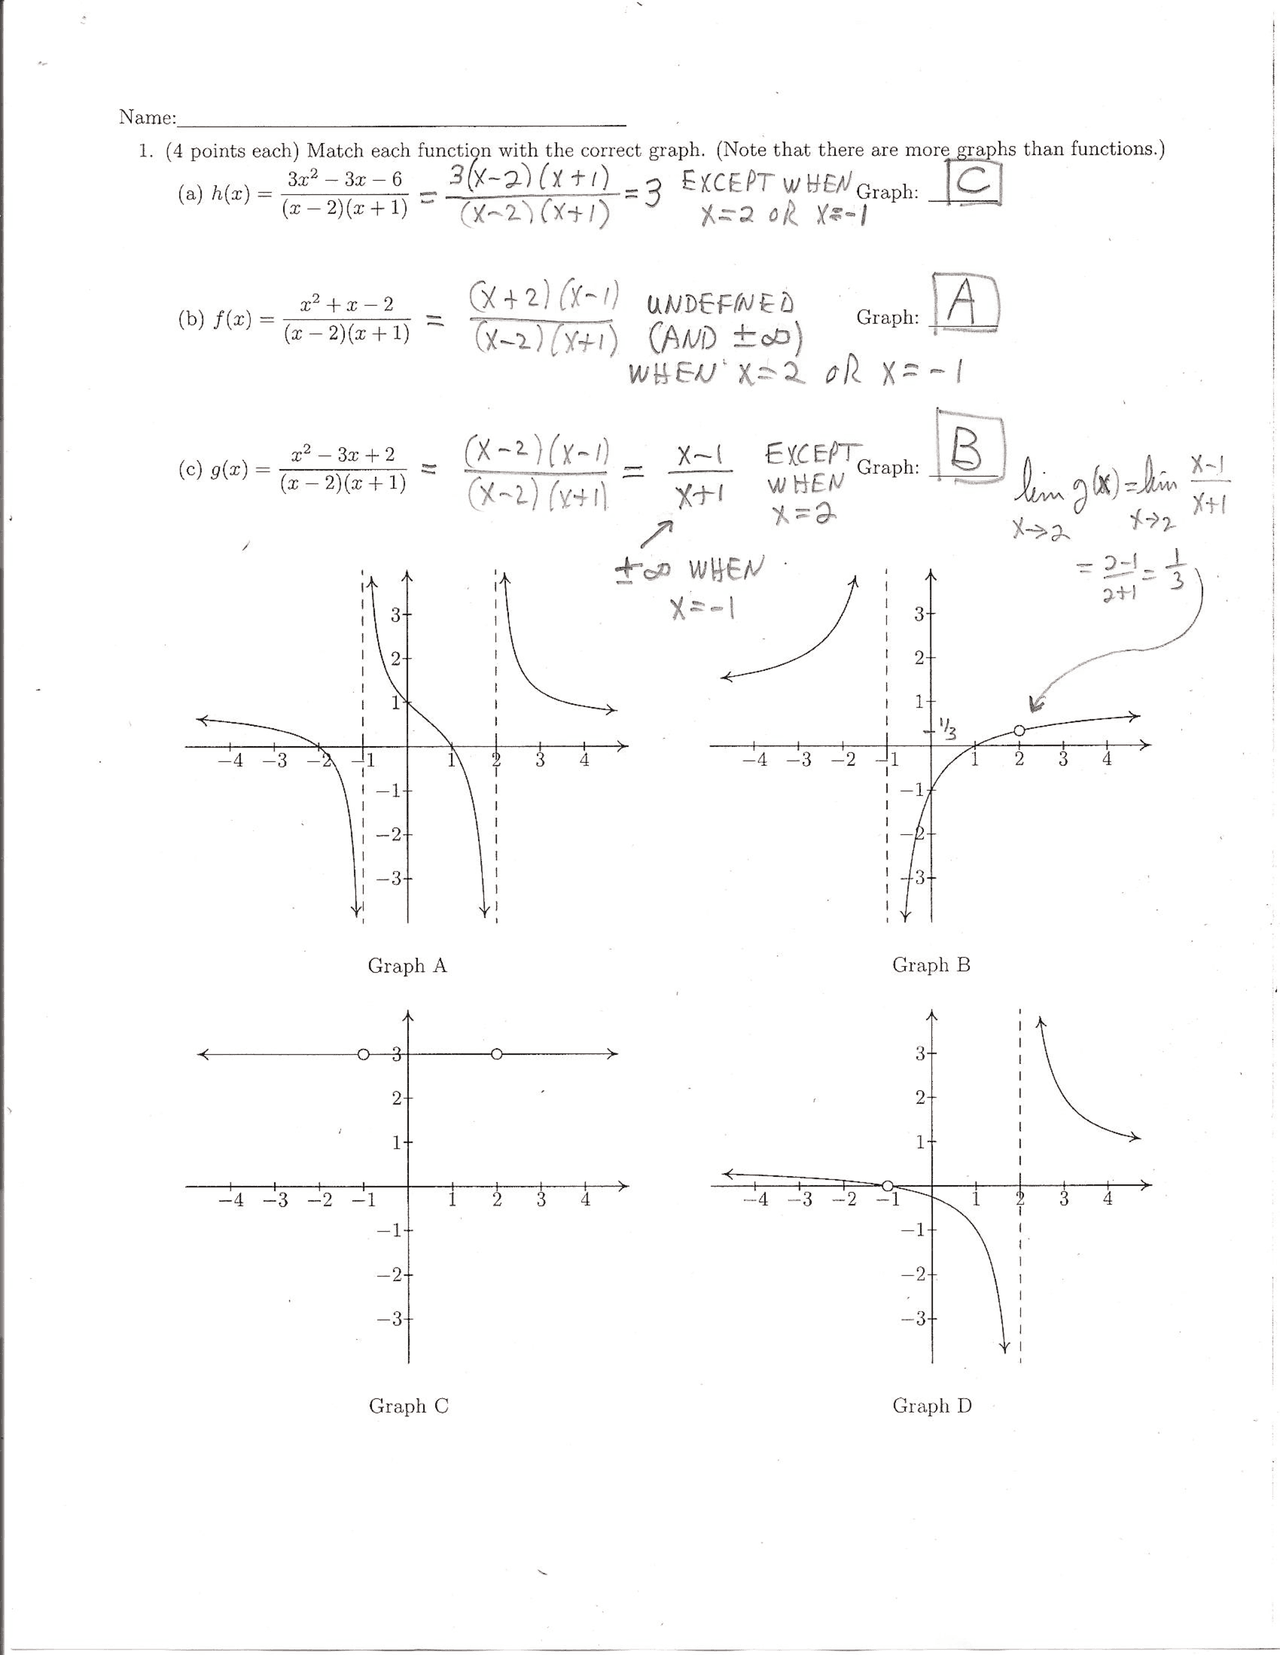 Name:
1. (4 points each) Match each function with the correct graph. (Note that there are more graphs than functions.)
(a) h(x) = (3x² − 3x − 6)/((x − 2)(x + 1)) = 3(x−2)(x+1)/((x−2)(x+1)) = 3 EXCEPT WHEN X=2 OR X=-1 Graph: C
(b) f(x) = (x² + x − 2)/((x − 2)(x + 1)) = (x+2)(x−1)/((x−2)(x+1)) UNDEFINED (AND ±∞) WHEN X=2 OR X=-1 Graph: A
(c) g(x) = (x² − 3x + 2)/((x − 2)(x + 1)) = (x−2)(x−1)/((x−2)(x+1)) = (x−1)/(x+1) EXCEPT WHEN X=2 Graph: B
±∞ WHEN X=-1
lim x→2 g(x) = lim x→2 (x−1)/(x+1)
= (2−1)/(2+1) = 1/3
3
2
1
−4 −3 −2 −1 1 2 3 4
−1
−2
−3
Graph A
3
2
1
1/3
−4 −3 −2 −1 1 2 3 4
−1
−2
−3
Graph B
3
2
1
−4 −3 −2 −1 1 2 3 4
−1
−2
−3
Graph C
3
2
1
−4 −3 −2 −1 1 2 3 4
−1
−2
−3
Graph D